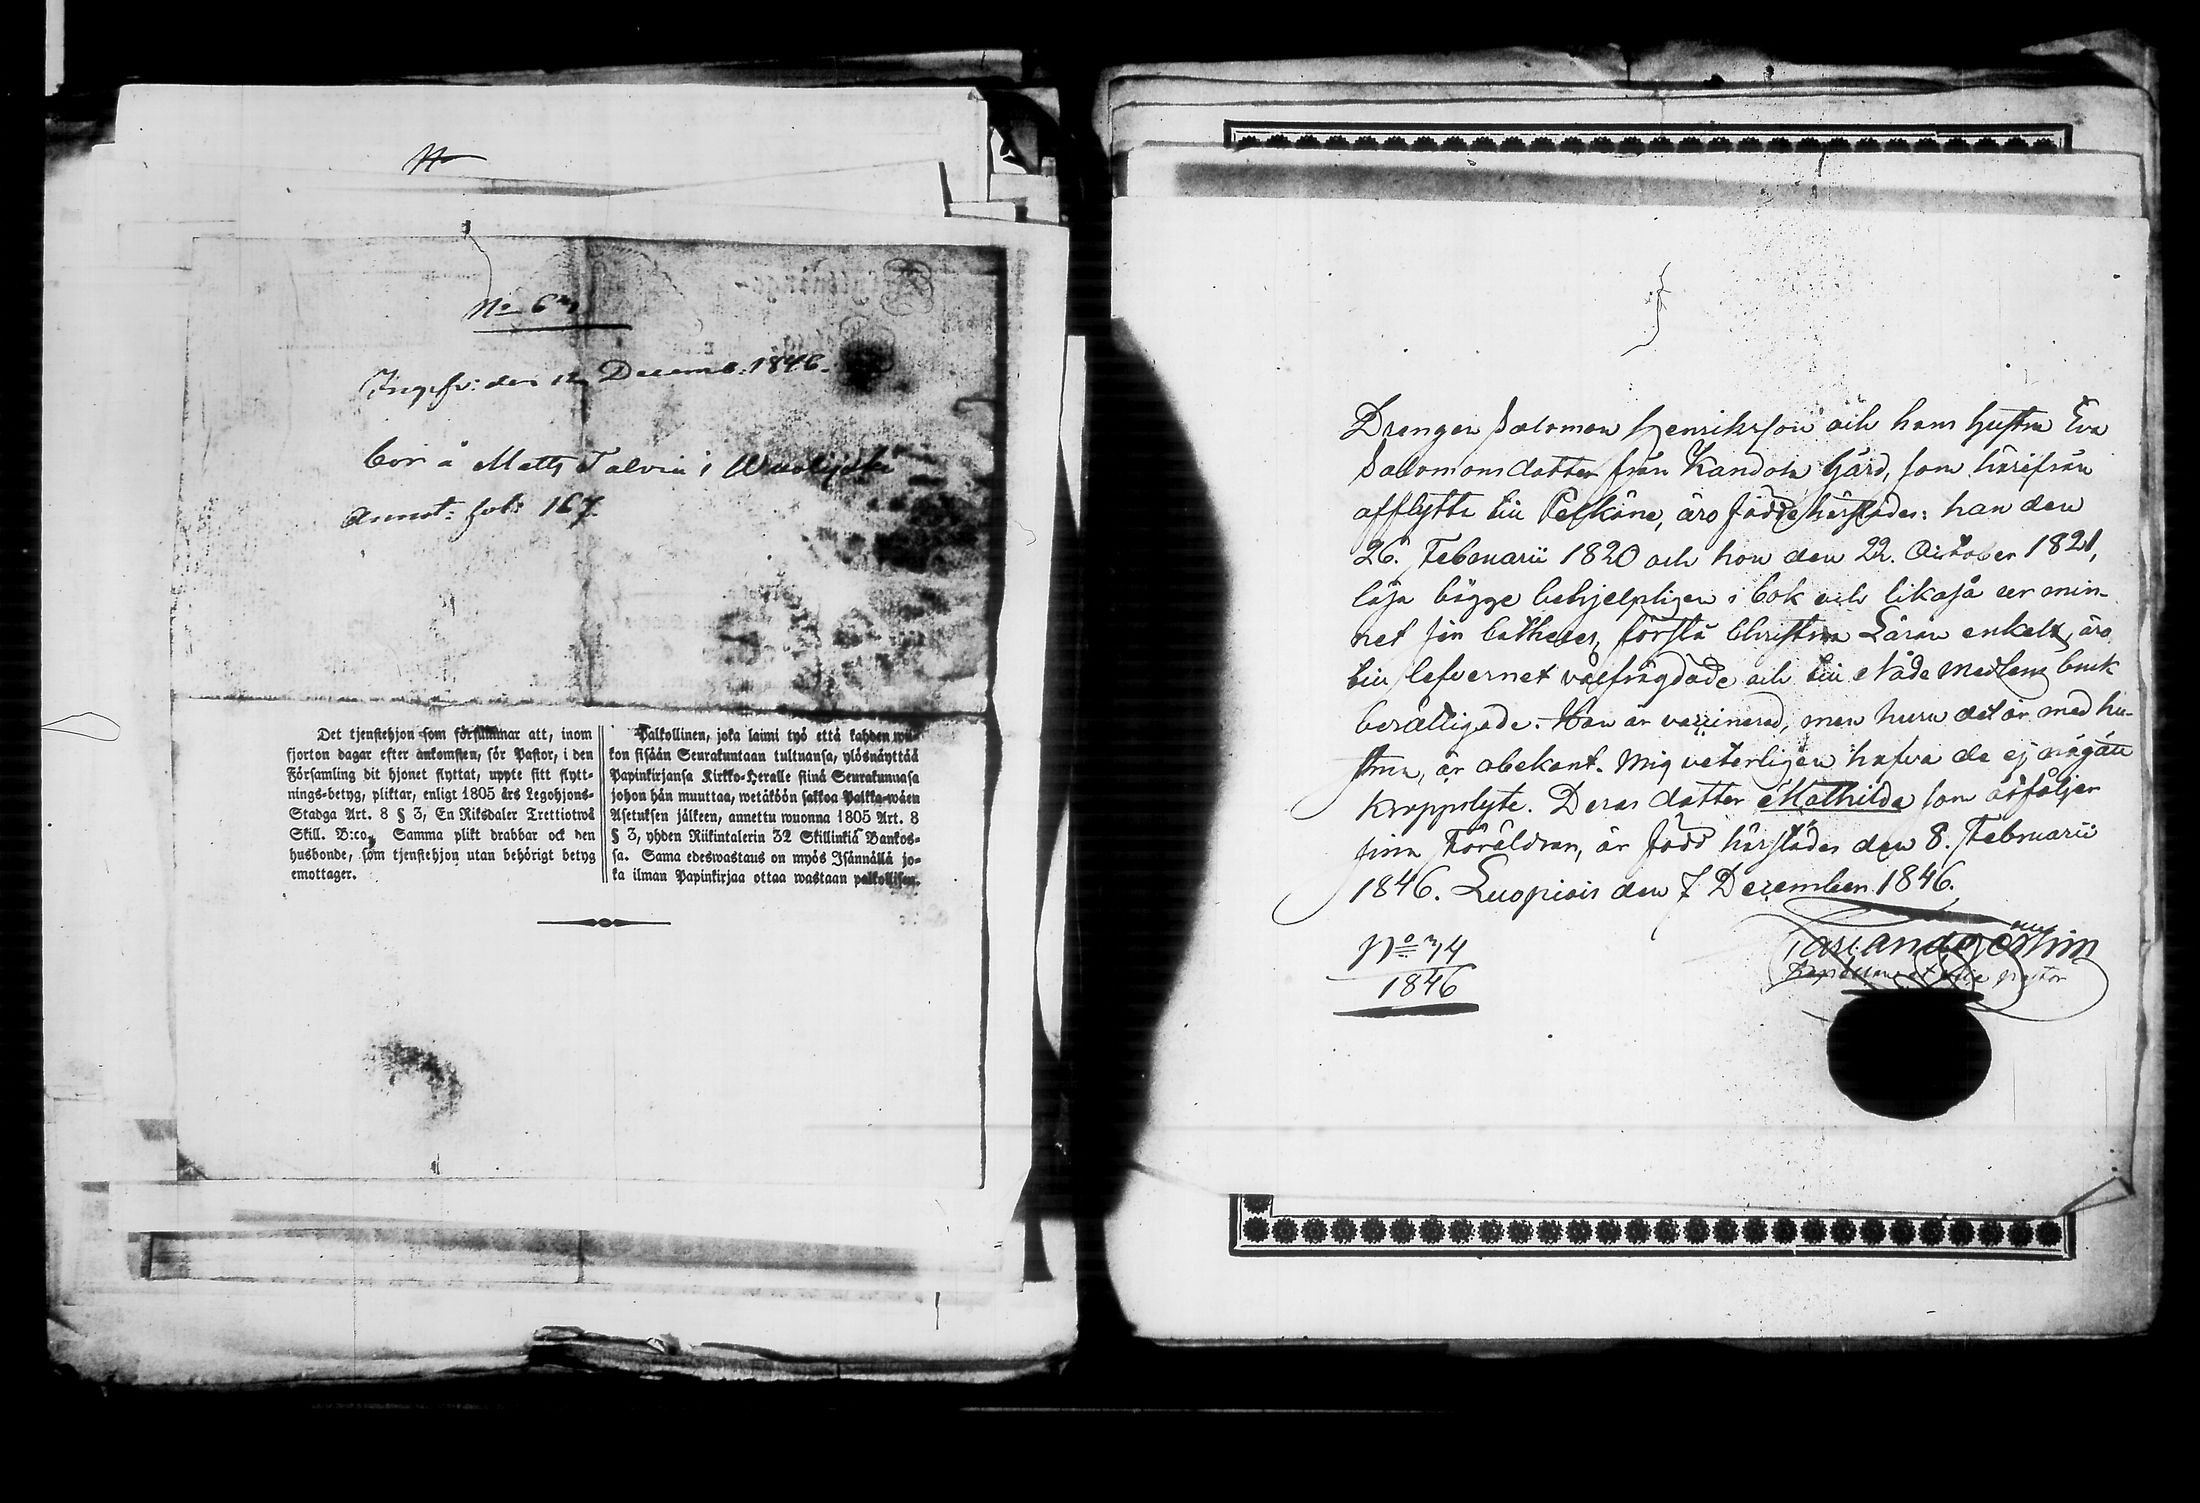 No 63.
Ingifv: den 12 Decemb: 1846.
bor å Matts Talvia i Wuolijoki
Annot: fol: 167.
Det tjenstehjon som försummar att, inom
fjorton dagar efter ankomsten, för Pastor, i den
Församling dit hjonet flyttat, uppte sitt flytt-
nings-betyg, pliktar, enligt 1805 års Legohjons-
Stadga Art. 8 § 3, En Riksdaler Trettiotwå
Skill. B:co. Samma plikt drabbar ock den
husbonde, som tjenstehjon utan behörigt betyg
emottager.
Palkollinen, joka laimi lyö että kahden wii-
kon sisään Seurakuntaan tultuansa, ylösnäyttää
Papinkirjansa Kirkko-Heralle siinä Seurakunnasa
johon hän muuttaa, wetäköön sakkoa Palkka-wäen
Asetuksen jälkeen, annettu wuonna 1805 Art. 8
§ 3, yhden Riikintalerin 32 Skillinkiä Bankos-
sa. Sama edeswastaus on myös Isännällä jo-
ka ilman Papinkirjaa ottaa wastaan palkollisen.
Drengen Salomon Henriksson och hans hustru Eva
Salomonsdotter från Kandola Gård, som härifrån
afflytta till Pelkäne, äro födde härstädes: han den
26. Februarii 1820 och hon den 22. October 1821,
läsa bägge behjelpligen i bok och likaså ur min-
net sin Catheches, förstå Christna Läran enkelt, äro
till lefvernet välfrägdade och till Nådemedlens bruk
berättigade. Han är vaccinerad, men huru det är med hu-
strun, är obekant. Mig veterligen hafva de ej någått
kroppslyte. Deras dotter Mathilda som åtföljer
sina Föräldrar, är född härstädes den 8. Februarii
1846. Luopiois den 7 December 1846.
No 74
1846